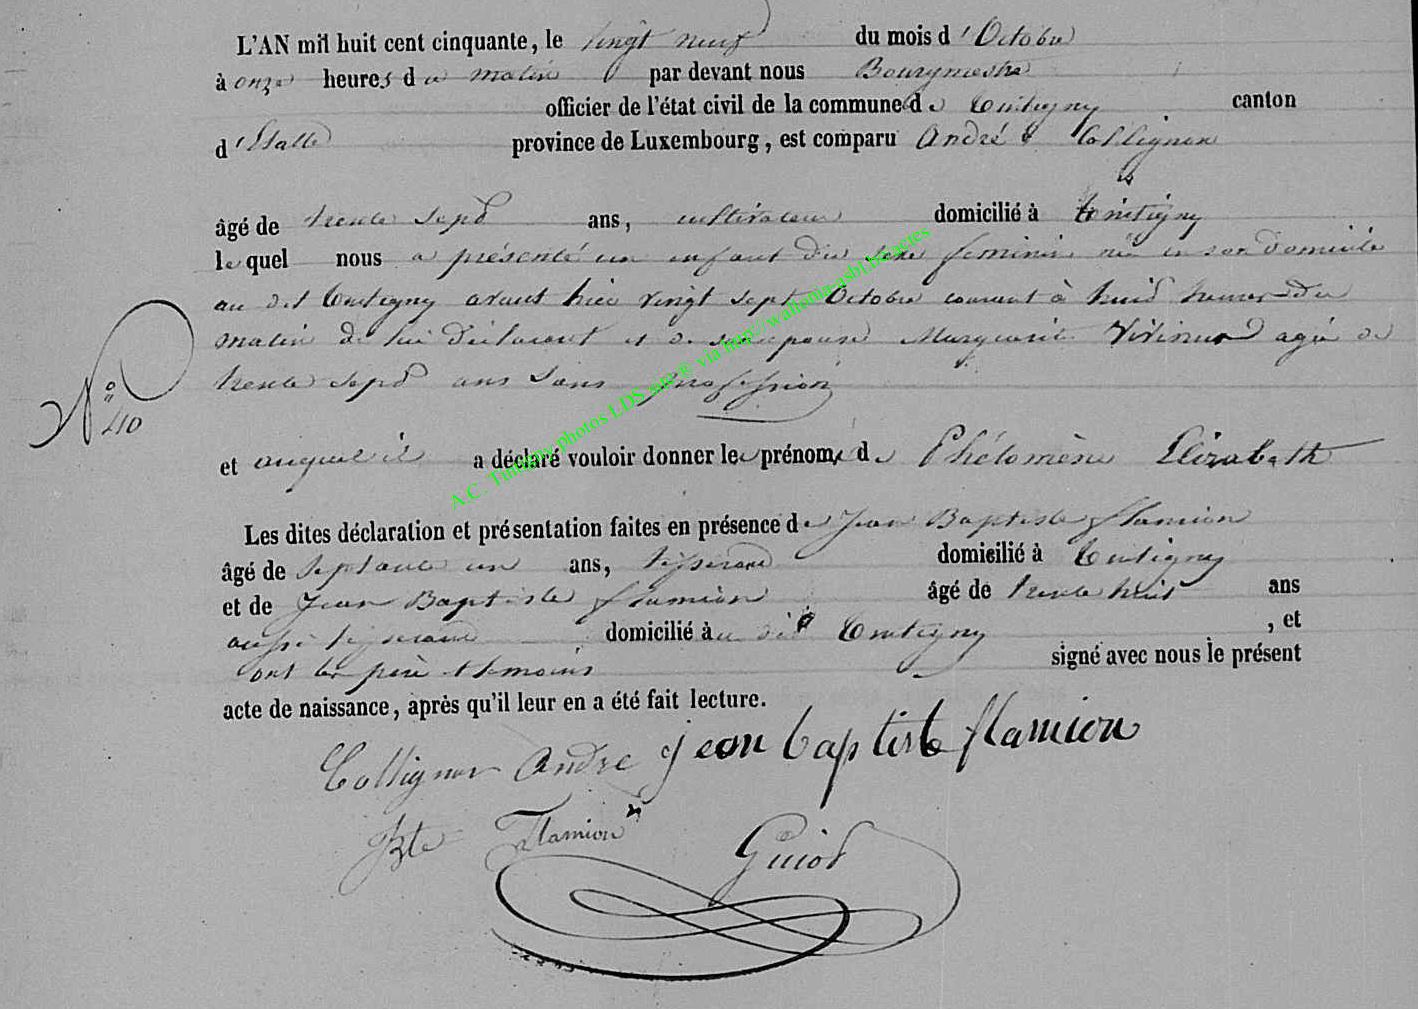 L'AN mil huit cent cinquante, le vingt neuf du mois d'Octobre
à onze heures du matin par devant nous Bourgmestre
officier de l'état civil de la commune de Tintigny canton
d'Etalle province de Luxembourg, est comparu André Collignon
âgé de trente sept ans, cultivateur domicilié à Tintigny
lequel nous a présenté un enfant du sexe feminin née en son domicile
au dit Tintigny avant hier vingt sept Octobre courant à huit heures du
matin de lui déclarant et de son épouse Marguerite agée de
trente sept ans sans profession
N° 40
et auquel il a déclaré vouloir donner les prénoms de Phélomène Elizabeth
Les dites déclaration et présentation faites en présence de Jean Baptiste flamion
âgé de septante un ans, tisserand domicilié à Tintigny
et de Jean Baptiste flamion âgé de trente huit ans
aussi tisserand domicilié au dit Tintigny , et
ont les père et témoins signé avec nous le présent
acte de naissance, après qu'il leur en a été fait lecture.
Collignon André jean baptiste flamion
JBte Flamion Guiot
A.C. Tintigny photos LDS via http://wallonia-asbl.be/actes